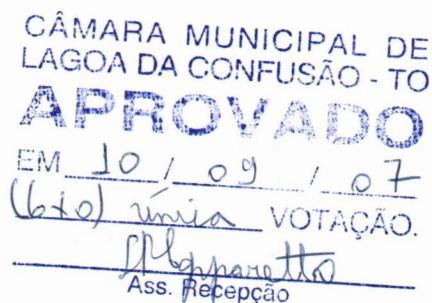 CÂMARA MUNICIPAL DE
LAGOA DA CONFUSÃO - TO
APROVADO
EM 10 / 09 / 07
(6x0) única VOTAÇÃO.
Ass. Recepção